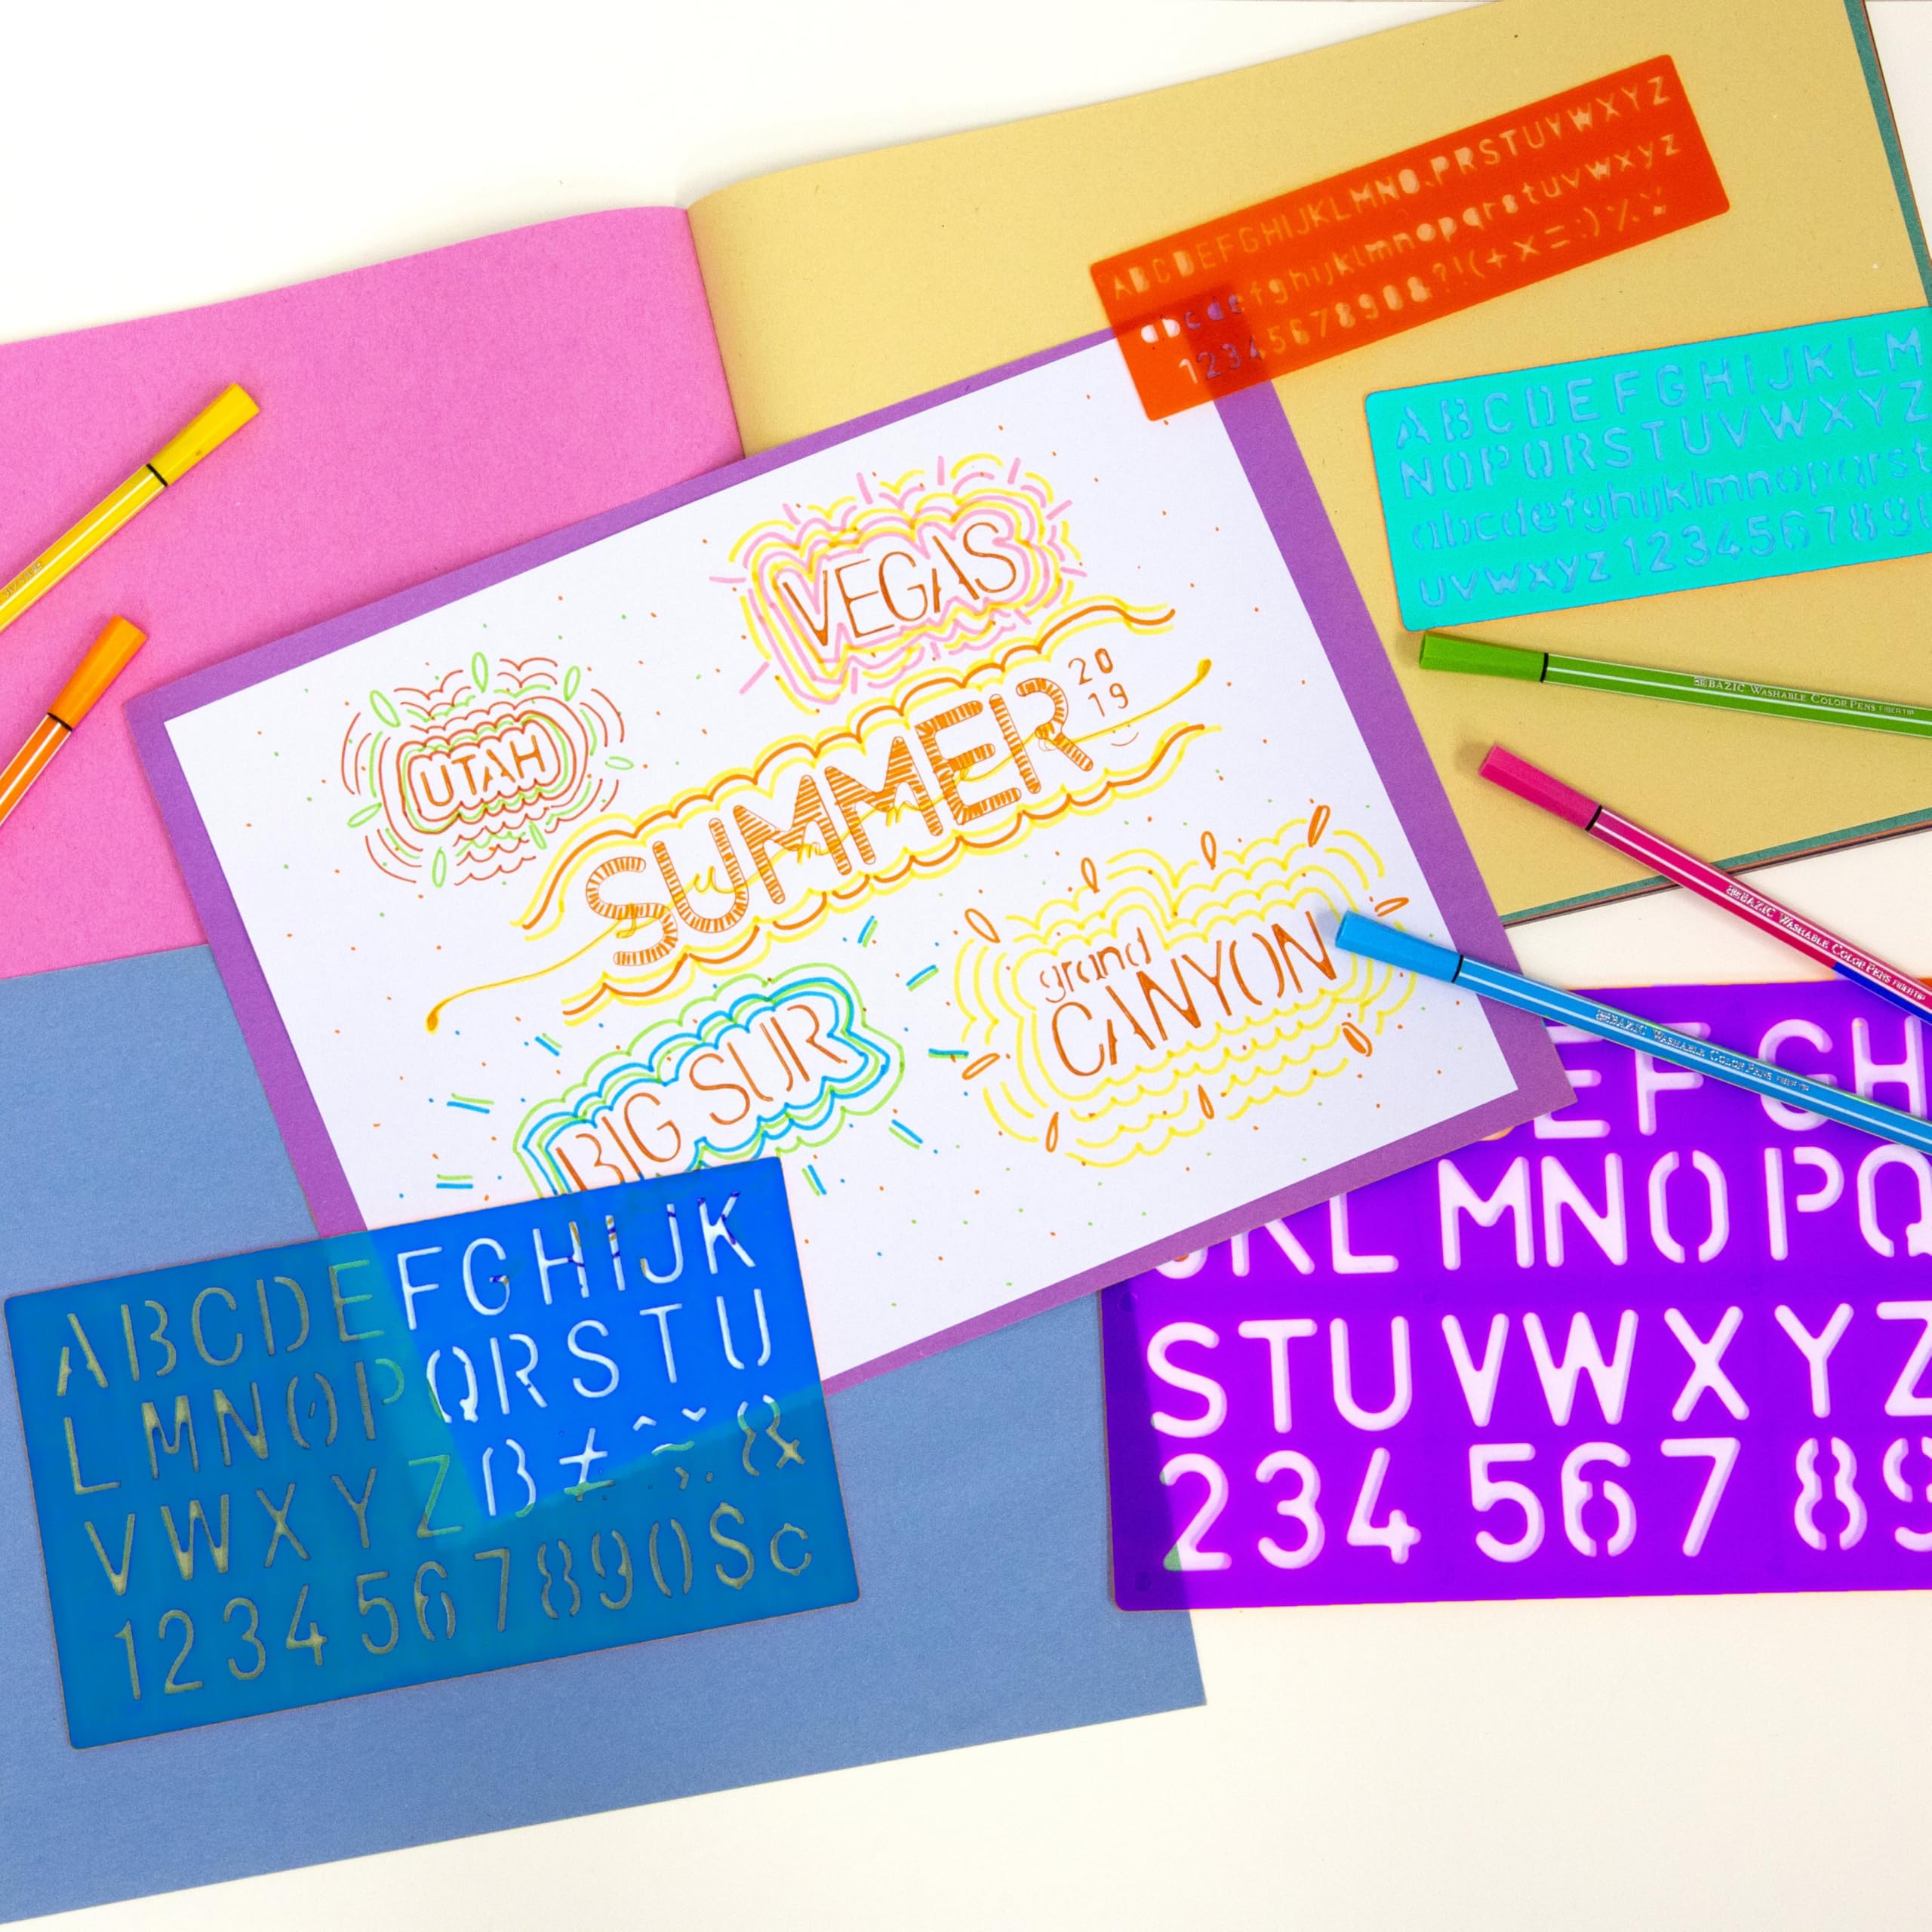 ABCDEFGHIJKLMNO.PRSTUVWXYZ
abcdefghijklmnopqrstuvwxyz
1234567890&?!(+×=:)
ABCDEFGHIJKLM
NOPQRSTUVWXYZ
abcdefghijklmnopqrst
uvwxyz 123456789
VEGAS
UTAH
SUMMER
summer
20
19
BIG SUR
grand
CANYON
BAZIC WASHABLE COLOR PENS FIBERTIP
BAZIC WASHABLE COLOR PENS FIBERTIP
BAZIC WASHABLE COLOR PENS FIBERTIP
ABCDEFGHIJK
LMNOPQRSTU
VWXYZ ß ± &
1234567890Sc
EFGH
JKL MNOPQ
STUVWXYZ
234 567 89